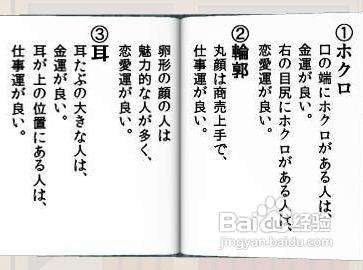 ①ホクロ
口の端にホクロがある人は、
金運が良い。
右の目尻にホクロがある人は、
恋愛運が良い。
②輪郭
丸顔は商売上手で、
仕事運が良い。
卵形の顔の人は
魅力的な人が多く、
恋愛運が良い。
③耳
耳たぶの大きな人は、
金運が良い。
耳が上の位置にある人は、
仕事運が良い。
Baidu经验
jingyan.baidu.com